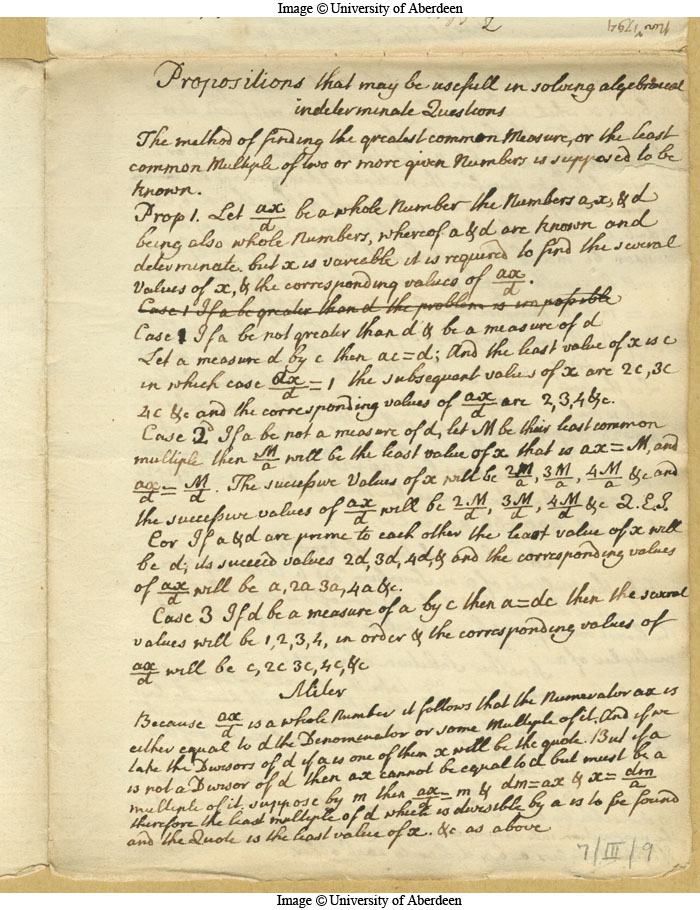 Image © University of Aberdeen
2
Propositions that may be usefull in solving algebraical
indeterminate Questions
The method of finding the greatest common Measure, or the least
common Multiple of two or more given Numbers is supposed to be
known.
Prop 1. Let ax/d be a whole Number the Numbers a, x, & d
being also whole Numbers, whereof a & d are known and
determinate. but x is variable it is required to find the several
values of x, & the corresponding values of ax/d.
Case 1 If a be greater than d the problem is impossible
Case 1 If a be not greater than d & be a measure of d
Let a measure d by c then ac=d; And the least value of x is c
in which case ax/d = 1 the subsequent values of x are 2c, 3c
4c &c and the corresponding values of ax/d are 2, 3, 4 &c.
Case 2d If a be not a measure of d, let M be their least common
multiple then M/a will be the least value of x that is ax = M, and
ax/d = M/d. The successive Values of x will be 2M/a, 3M/a, 4M/a &c and
the successive values of ax/d will be 2M/d, 3M/d, 4M/d &c Q.E.I.
Cor If a & d are prime to each other the least value of x will
be d; its succeed values 2d, 3d, 4d, & and the corresponding values
of ax/d will be a, 2a 3a, 4a &c.
Case 3 If d be a measure of a by c then a=dc then the several
values will be 1, 2, 3, 4, in order & the corresponding values of
ax/d will be c, 2c 3c, 4c, &c
Aliter
Because ax/d is a whole Number it follows that the Numerator ax is
either equal to d the Denominator or some Multiple of it. And if we
take the Divisors of d if a is one of them x will be the quote. But if a
is not a Divisor of d then ax cannot be equal to d but must be a
multiple of it, suppose by m then ax/d = m & dm = ax & x = dm/a
therefore the least multiple of d which is divisible by a is to be found
and the Quote is the least value of x. &c as above
7/III/9
Image © University of Aberdeen